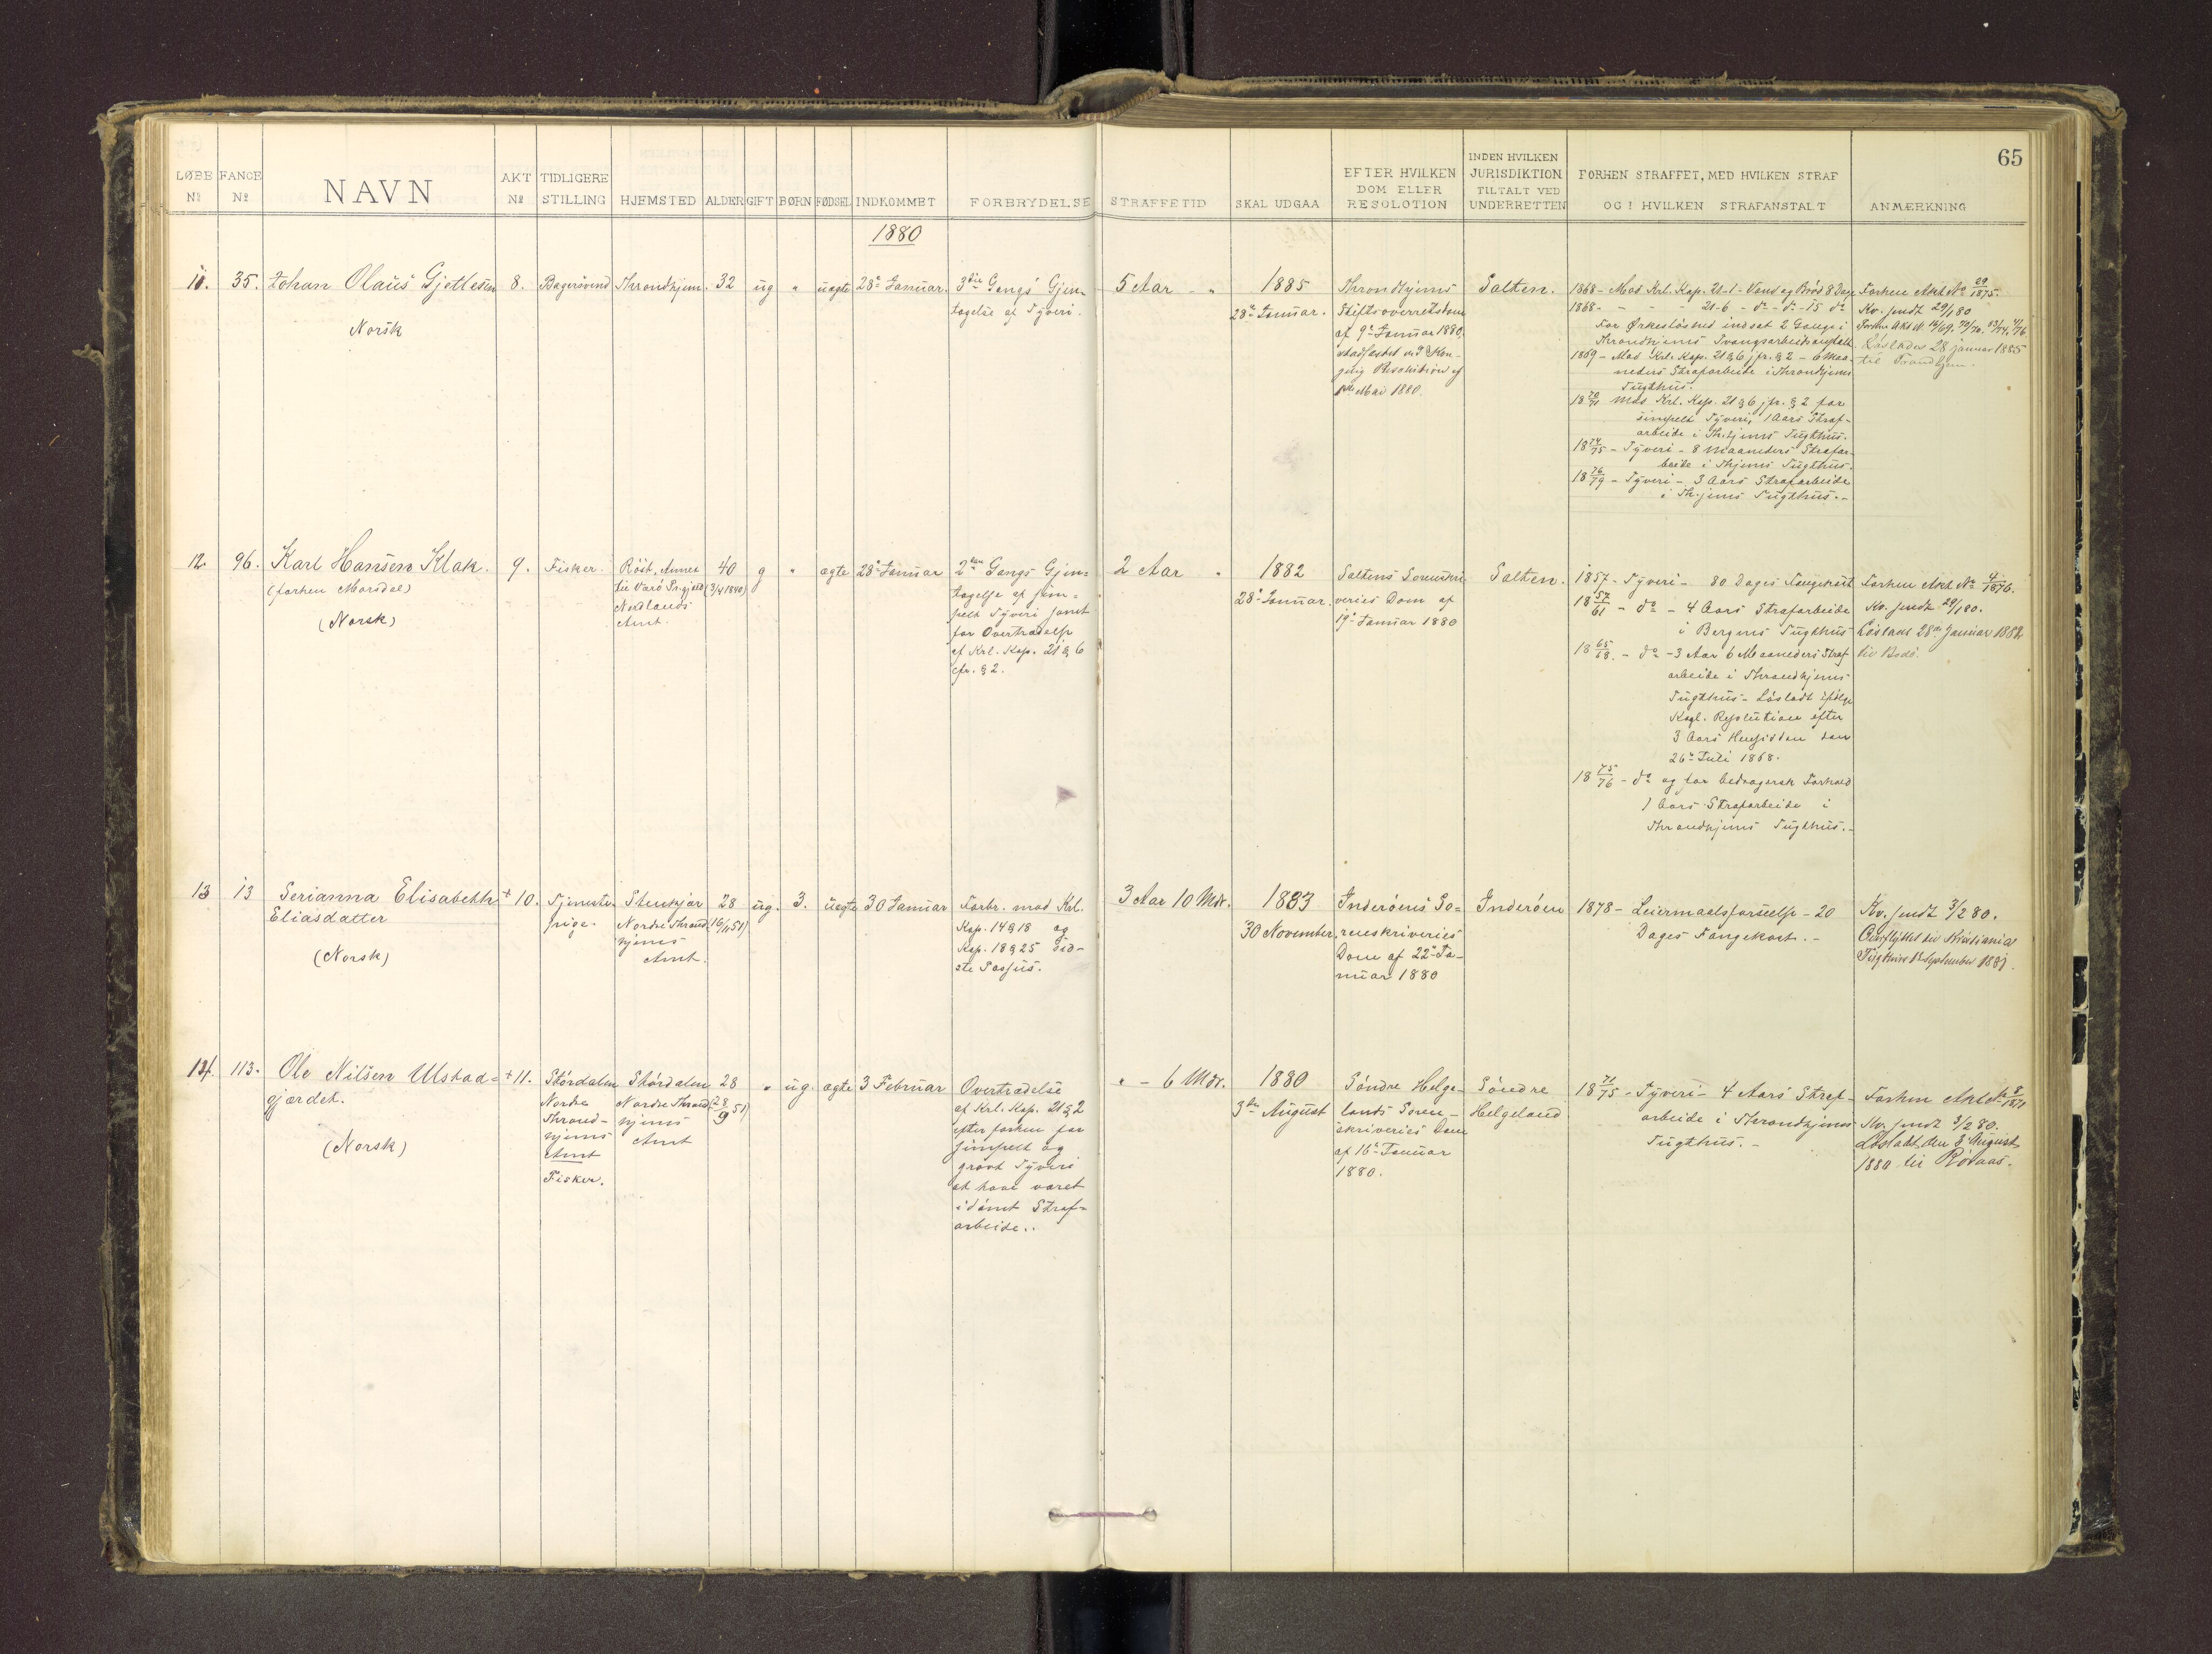 65
LØBE No
FANGE No
NAVN
AKT No
TIDLIGERE STILLING
HJEMSTED
ALDER
GIFT
BØRN
FØDSEL
INDKOMMET
FORBRYDELSE
STRAFFETID
SKAL UDGAA
EFTER HVILKEN DOM ELLER RESOLOTION
INDEN HVILKEN JURISDIKTION TILTALT VED UNDERRETTEN
FORHEN STRAFFET, MED HVILKEN STRAF OG I HVILKEN STRAFANSTALT
ANMÆRKNING
1880
11.
35.
Johan Olaus Gjetlesen
Norsk
8.
Bagersvend
Throndhjem.
32
ug
"
uagte
28de Januar.
3die Gangs Gjen-
tagelse af Tyveri.
5 Aar - "
1885
28de Januar.
Throndhjems
Stiftsoverretsdom
af 9de Januar 1880,
stadfæstet ved Kon-
gelig Resolution af
Mai 1880.
Salten.
1868 - Mod Krl. Kap. 21-1 - Vand og Brød 8 Dage
1868 - - 21-6 - do - do - 15 do
For Ørkesløshed indsat 2 Gange i
Throndhjems Tvangsarbeidsanstalt
1869 - Mod Krl. Kap. 21 § 6 jfr. § 2 - 6 Maa-
neders Strafarbeide i Throndhjems
Tugthus.
18 70/71 Mod Krl. Kap. 21 § 6 jfr. § 2 for
simpelt Tyveri, 1 Aars Straf-
arbeide i Th.hjems Tugthus.
18 74/75 - Tyveri - 8 Maaneders Strafar-
beide i Thjems Tugthus.
18 76/79 - Tyveri - 3 Aars Strafarbeide
i Th.jems Tugthus. -
Forhen Akt No 29/1875.
Kv. sendt 29/1 80
Løslades 28 januar 1885
til Trondhjem.
12.
96.
Karl Hansen Klak.
(forhen Morsdal)
(Norsk)
9.
Fisker.
Röst, Annex
til Varö Prgjeld
Nordlands
Amt.
40
(3/4 1840)
g
"
agte
28de Januar
2den Gangs Gjen-
tagelse af sim-
pelt Tyveri samt
for Overtrædelse
af Krl. Kap. 21 § 6
cfr. § 2.
2 Aar "
1882
28de Januar.
Saltens Sorenskri-
veries Dom af
19de Januar 1880
Salten.
1857 - Tyveri - 80 Dages Fangekost
18 57/61 - do - 4 Aars Strafarbeide
i Bergens Tugthus
18 65/68. - do - 3 Aar 6 Maaneders Straf
arbeide i Throndhjems
Tugthus - Løsladt ifølge
Kngl. Resolution efter
3 Aars Hensidden den
26de Juli 1868.
18 75/76 - do og for bedragersk Forhold
1 Aars Strafarbeide i
Throndhjems Tugthus. -
Forhen Akt No 4/1876.
Kv. sendt 29/1 80.
Løsladt 28de Januar 1882
til Bodø.
13
13
Serianna Elisabeth
Eliasdatter
(Norsk)
+ 10.
Tjeneste-
pige.
Stenkjær
Nordre Thrond-
hjems
Amt.
28
(16/11 51)
ug.
3.
uagte
30 Januar
Forbr. mod Krl.
Kap. 14 § 18 og
Kap. 18 § 25 sid-
ste Passus.
3 Aar 10 Mdr.
1883
30 November.
Inderøens So-
renskriveries
Dom af 22de Ja-
nuar 1880
Inderøen
1878 - Leiermaalsforseelse - 20
Dages Fangekost. -
Kv. sendt 3/2 80.
Overflyttet til Kristiania
Tugthus 13 September 1881.
14.
113.
Ole Nilsen Ulstad-
gjærdet.
(Norsk)
+ 11.
Størdalen
Nordre
Thrond-
hjems
Amt
Fisker.
Størdalen
Nordre Thrond-
hjems
Amt
28
(28/9 51)
"
ug.
agte
3 Februar
Overtrædelse
af Krl. Kap. 21 § 2
efter forhen for
simpelt og
grovt Tyveri
at have været
idømt Straf-
arbeide..
" - 6 Mdr.
1880
3die August
Søndre Helge-
lands Soren-
skriveries Dom
af 16de Januar
1880.
Søndre
Helgeland
18 71/75 - Tyveri - 4 Aars Straf-
arbeide i Throndhjems
Tugthus. -
Forhen Akt No 8/1871
Kv. sendt 3/2 80.
Løsladt den 3die August
1880 til Røraas.